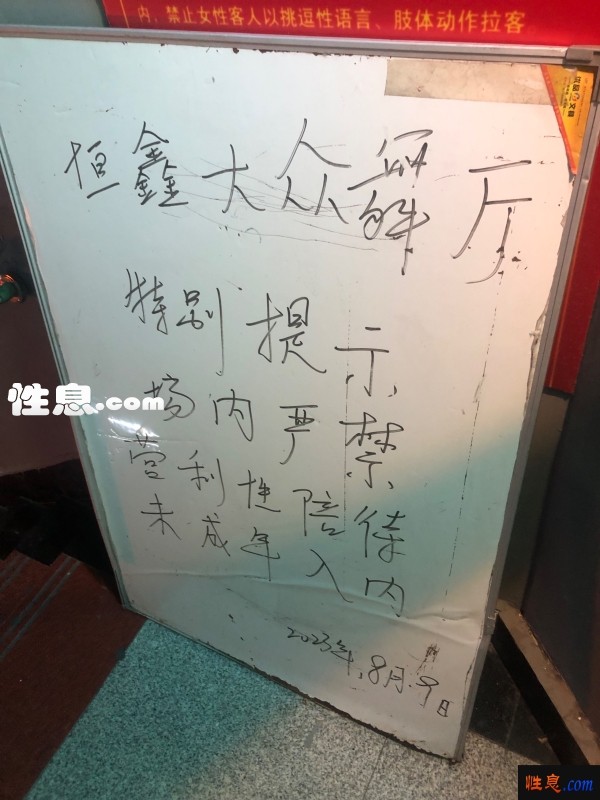 内，禁止女性客人以挑逗性语言、肢体动作拉客
恒鑫大众舞厅
特别提示
场内严禁
营利性陪侍
未成年入内
2023年,8月.9日
性息.com
性息.com